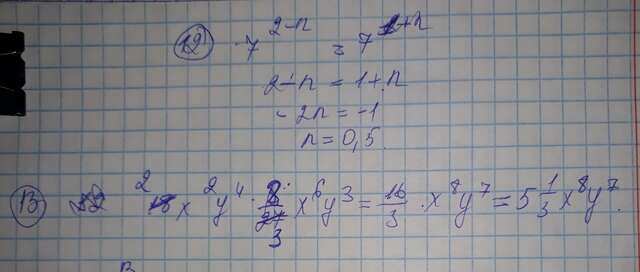 12 7^{2-n} = 7^{1+n}
2-n = 1+n
-2n = -1
n = 0,5
13 2 18 x^2 y^4 · 8/27 3 x^6 y^3 = 16/3 · x^8 y^7 = 5 1/3 x^8 y^7.
В